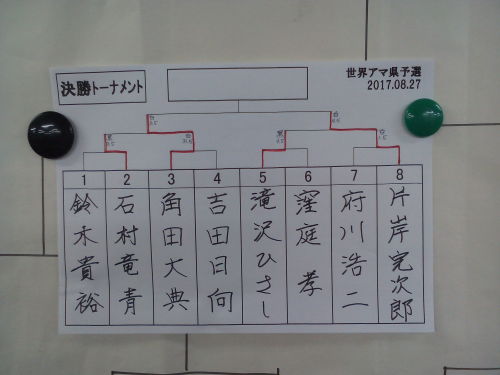 決勝トーナメント
世界アマ県予選
2017.08.27
1 2 3 4 5 6 7 8
鈴木貴裕
石村竜青
角田大典
吉田日向
滝沢ひさし
窪庭孝
府川浩二
片岸完次郎